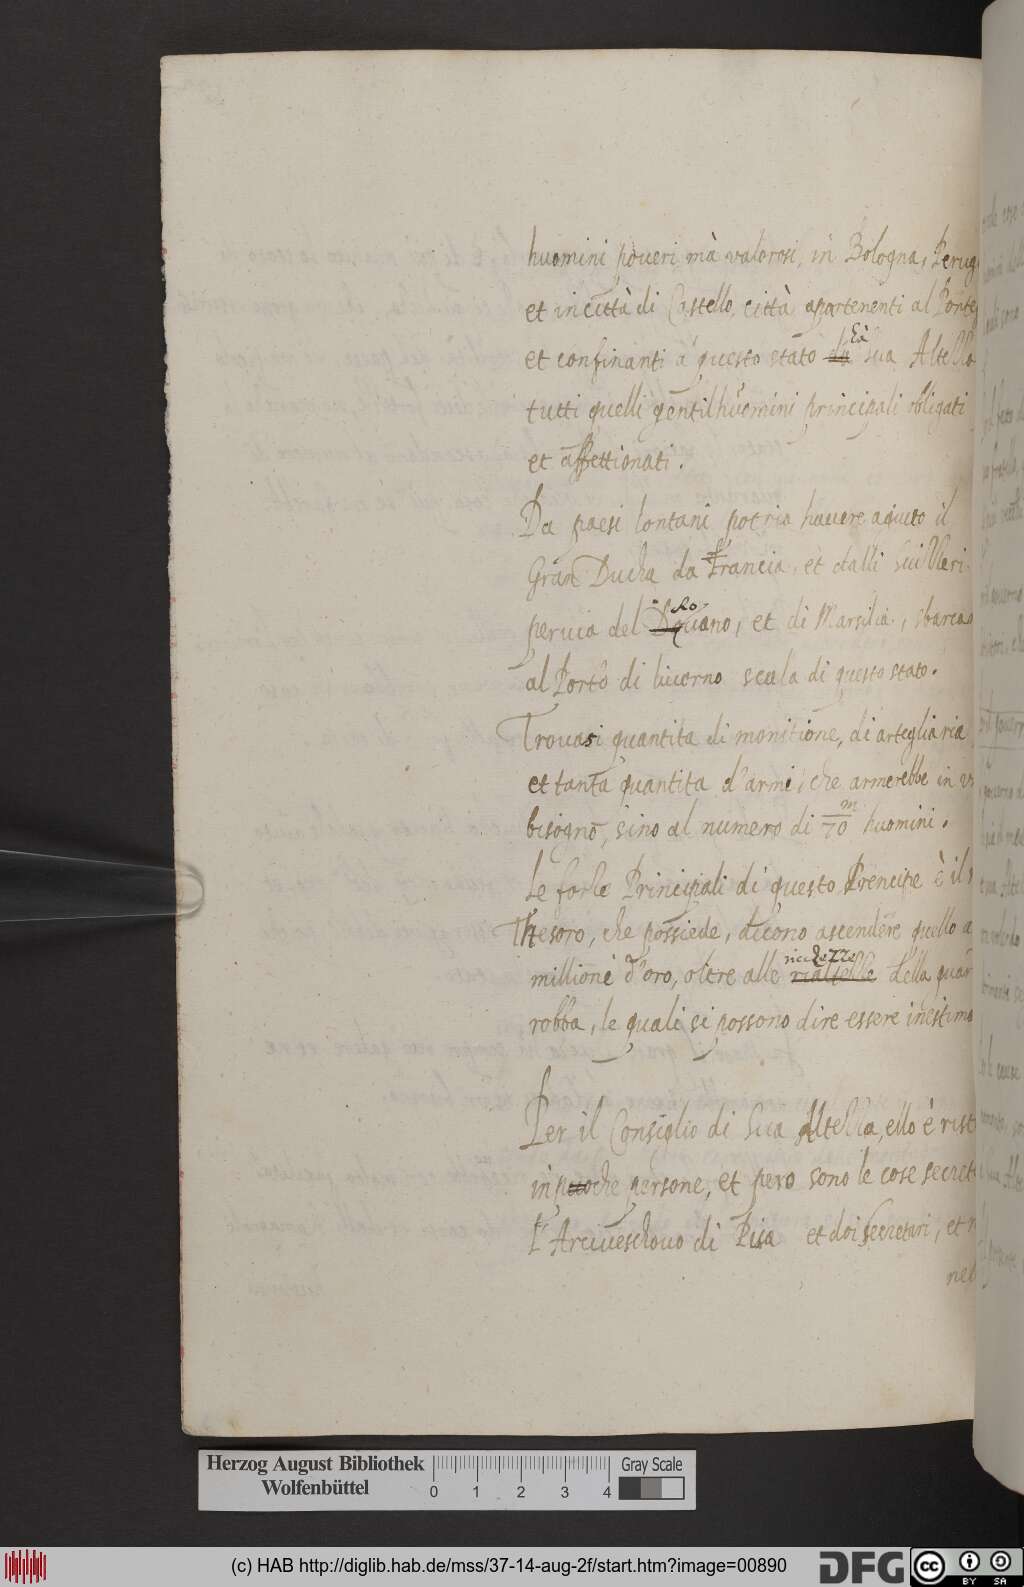 huomini poueri mà valorosi, in Bologna, Perug
et in città di Castello, città apartenenti al Ponte
et confinanti a questo stato da hà sua Altezza
tutti quelli gentilhuomini principali obligati
et affettionati.
Da paesi lontani potria hauere aiuto il
Gran Ducha da Francia, et dalli Suizzeri
per via del Douano, et di Marsilia, sbarcan
al Porto di liuorno scala di questo stato.
Trouasi quantita di monitione, di artegliaria
et tanta quantita d'armi, che armerebbe in un
bisogno, sino al numero di 70 m huomini.
Le forze Principali di questo Prencipe è il
Thesoro, che possiede, dicono ascendere quello a
millioni d'oro, oltre alle richezze della guar
robba, le quali si possono dire essere inestima
Per il Consiglio di Sua Altezza, ello è rist
in puoche persone, et pero sono le cose secret
l'Arciueschouo di Pisa et doi secretari, et
nel
Herzog August Bibliothek
Wolfenbüttel
0 1 2 3 4
Gray Scale
(c) HAB http://diglib.hab.de/mss/37-14-aug-2f/start.htm?image=00890
DFG
cc BY SA